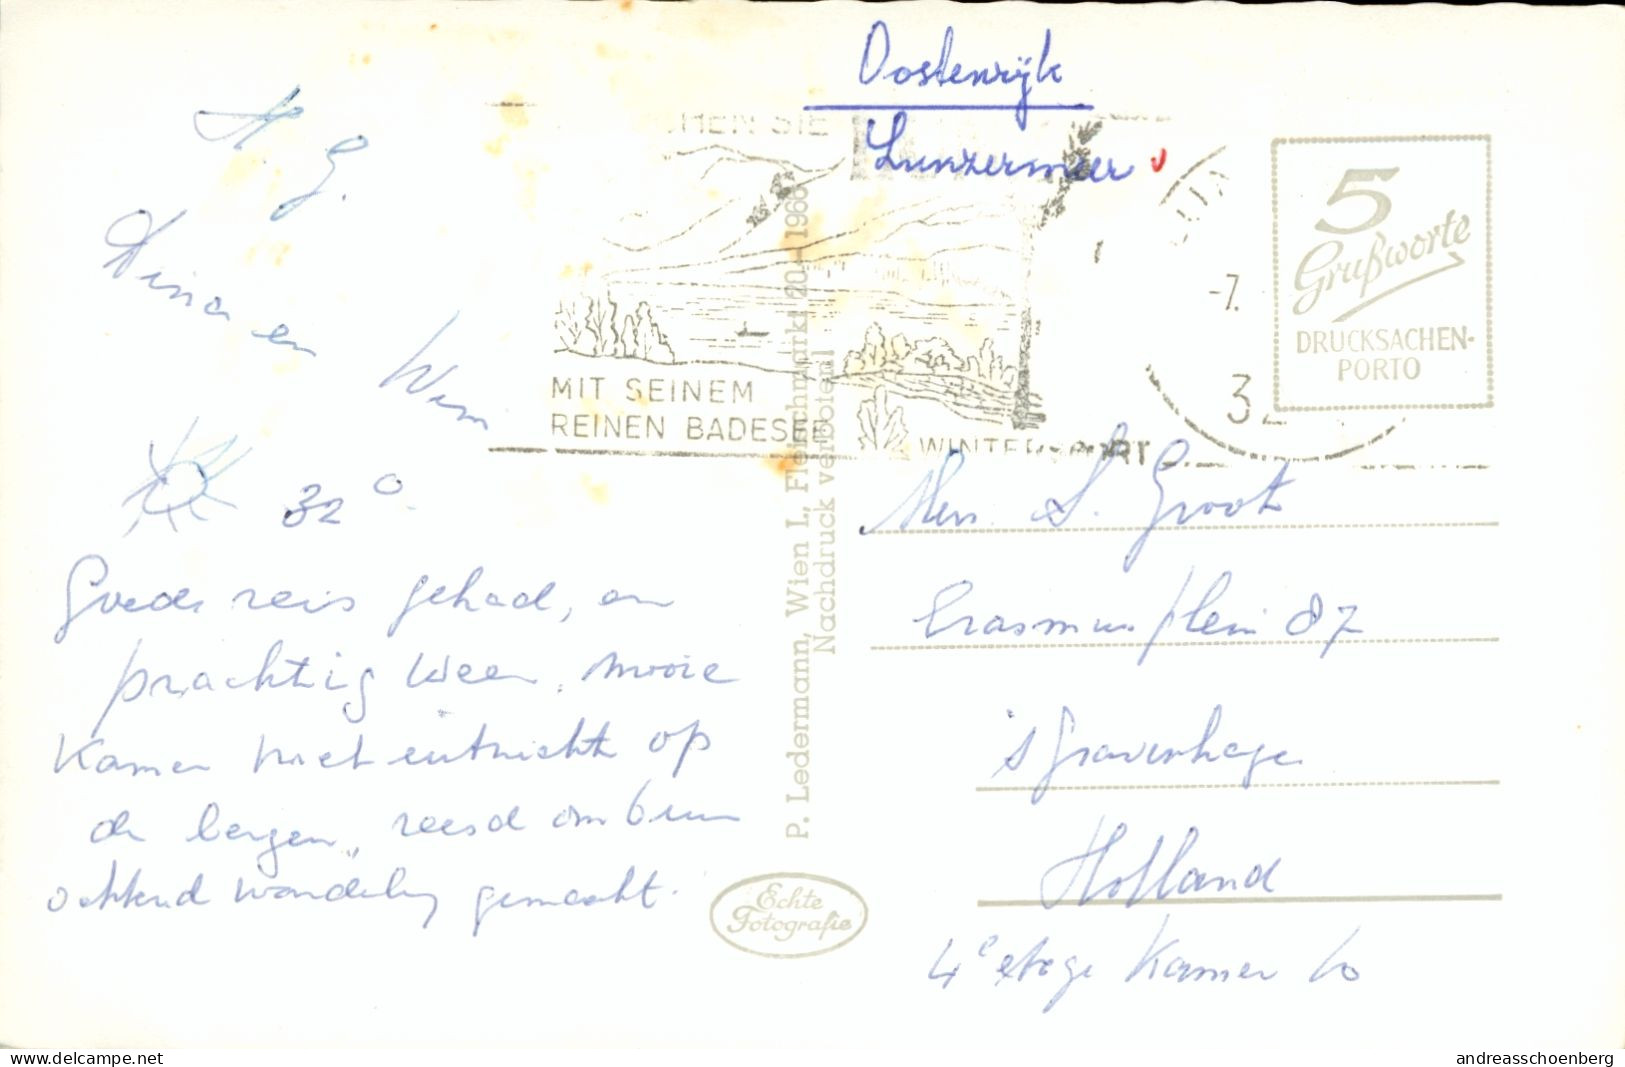 Oostenrijk
Lunzermeer
5
Grußworte
DRUCKSACHEN-
PORTO
CHEN SIE
MIT SEINEM
REINEN BADESEE
WINTERSPORT
-7.
32
P. Ledermann, Wien I., Fleischmarkt 20 - 1966
Nachdruck verboten!
Echte
Fotografie
H. G.
en Wim
32°
Goede reis gehad, en
prachtig weer, mooie
kamer met uitzicht op
de bergen, reesd om 6 uur
ochtend wandeling gemaakt.
S. Groot
Erasmusplein 87
's Gravenhage
Holland
4e etage Kamer 10
www.delcampe.net
andreasschoenberg